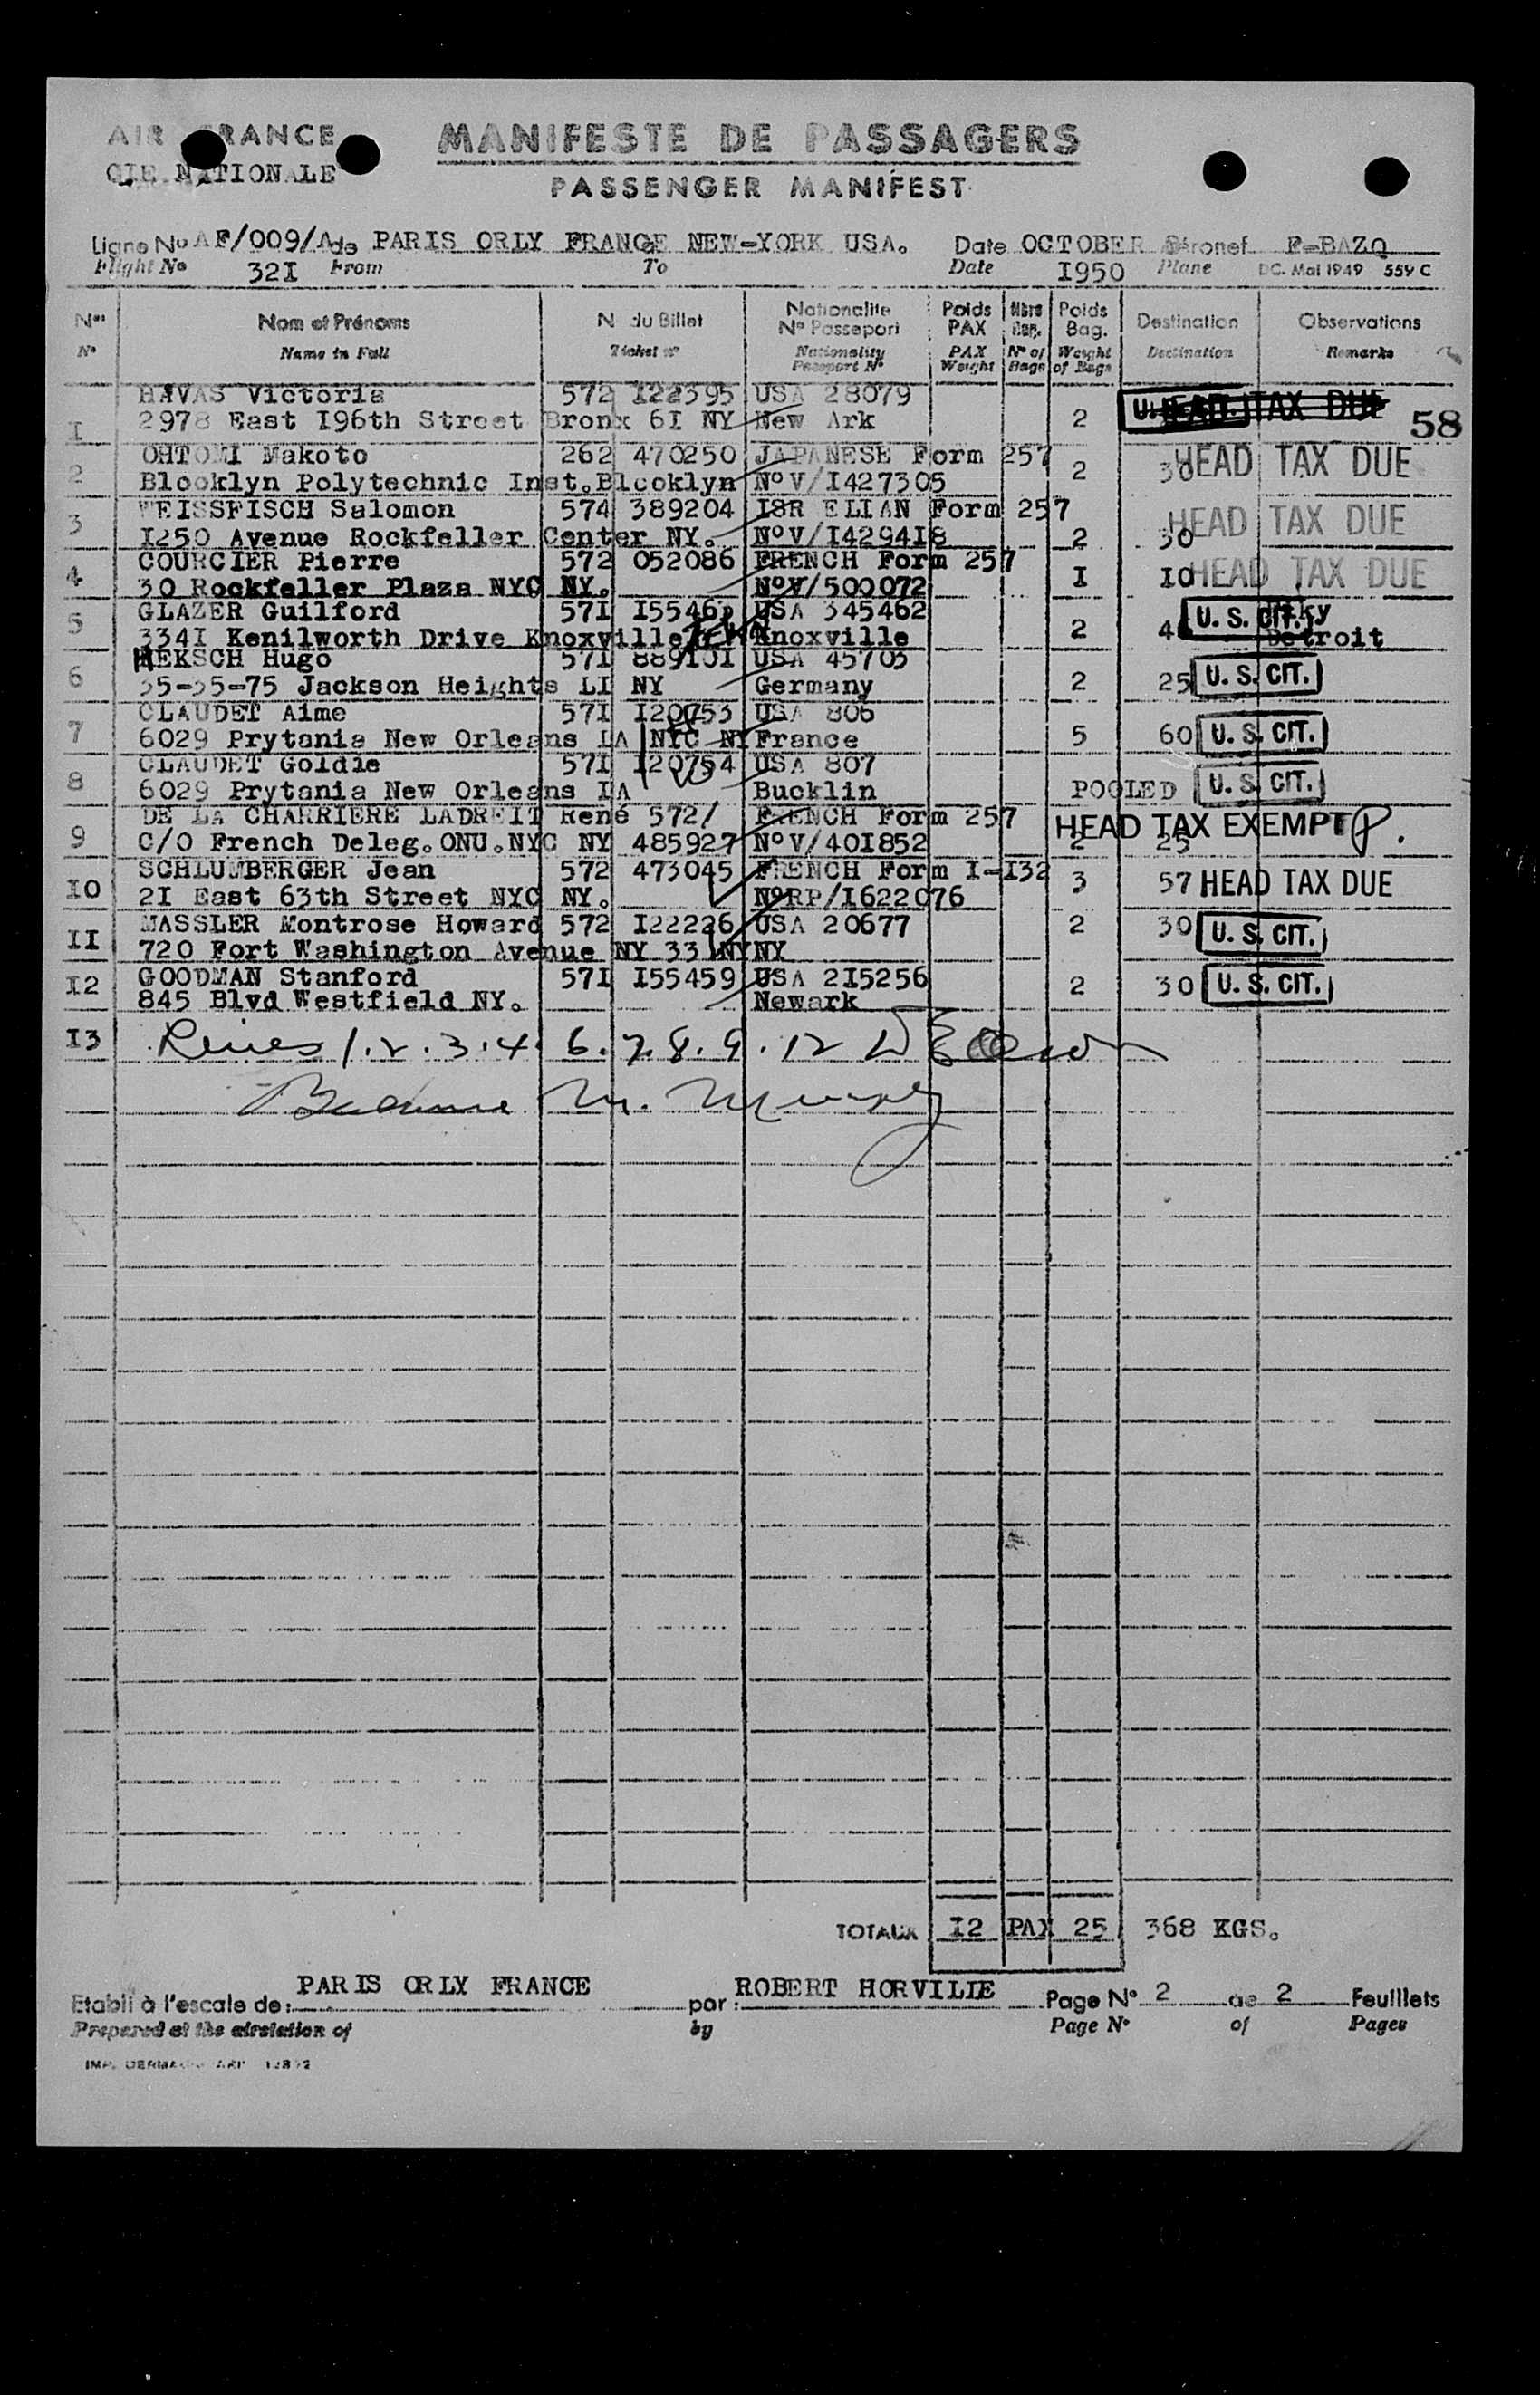 AIR FRANCE
CIE NATIONALE
MANIFESTE DE PASSAGERS
PASSENGER MANIFEST
Ligne No AF/009/A de PARIS ORLY FRANCE à NEW-YORK USA. Date OCTOBER Aéronef F-BAZQ
Flight No 32I From To Date I950 Plane DC. Mai 1949 559 C
Nos Nom et Prénoms N du Billet Nationalite No Passeport Poids PAX Nbre Bag. Poids Bag. Destination Observations
No Name in Full Ticket no Nationality Passport No PAX Weight No of Bags Weight of Bags Destination Remarks
HAVAS Victoria 572 I22395 USA 28079
I 2978 East I96th Street Bronx 6I NY New Ark 2 HEAD TAX DUE 58
OHTOMI Makoto 262 470250 JAPANESE Form 257
2 Blooklyn Polytechnic Inst.Blooklyn No V/I427305 2 30 HEAD TAX DUE
WEISSFISCH Salomon 574 389204 ISR ELIAN Form 257
3 I250 Avenue Rockfeller Center NY. No V/I429418 2 30 HEAD TAX DUE
COURCIER Pierre 572 052086 FRENCH Form 257
4 30 Rockfeller Plaza NYC NY. No V/500072 I I0 HEAD TAX DUE
GLAZER Guilford 57I USA 345462
5 334I Kenilworth Drive Knoxville Knoxville 2 U. S. CIT. Detroit
HEKSCH Hugo 57I 889I0I USA 45703
6 35-35-75 Jackson Heights LI NY Germany 2 25 U. S. CIT.
CLAUDET Aime 57I I20753 USA 806
7 6029 Prytania New Orleans LA NYC NY France 5 60 U. S. CIT.
CLAUDET Goldie 57I I20754 USA 807
8 6029 Prytania New Orleans LA Bucklin POOLED U. S. CIT.
DE LA CHARRIERE LADREIT René 572/ FRENCH Form 257
9 C/O French Deleg.ONU.NYC NY 485927 No V/40I852 2 25 HEAD TAX EXEMPT
SCHLUMBERGER Jean 572 473045 FRENCH Form I-I32
I0 2I East 63th Street NYC NY. No RP/I622076 3 57 HEAD TAX DUE
MASSLER Montrose Howard 572 I22226 USA 20677
II 720 Fort Washington Avenue NY 33 NY NY 2 30 U. S. CIT.
GOODMAN Stanford 57I I55459 USA 2I5256
I2 845 Blvd Westfield NY. Newark 2 30 U. S. CIT.
I3 Lines 1.2.3.4. 6.7.8.9.12
TOTAUX I2 PAX 25 368 KGS.
PARIS ORLY FRANCE ROBERT HORVILIE
Etabli à l'escale de: par: Page No 2 de 2 Feuillets
Prepared at the airstation of by Page No of Pages